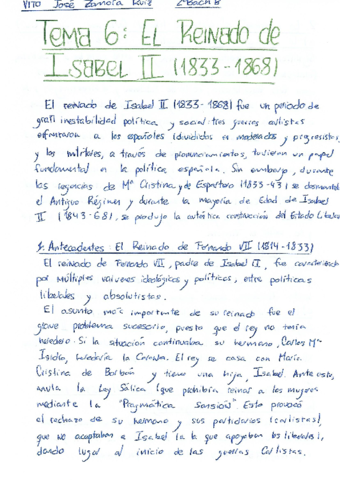 VITO José Zamora Ruiz 2ºBach B
TEMA 6: EL REINADO DE
ISABEL II (1833-1868)
El reinado de Isabel II (1833-1868) fue un periodo de
gran inestabilidad política y social: tres guerras carlistas
enfrentaron a los españoles (divididos en moderados y progresistas)
y los militares, a través de pronunciamientos, tuvieron un papel
fundamental en la política española. Sin embargo, durante
las regencias de Mª Cristina y de Espartero (1833-43) se desmanteló
el Antiguo Régimen y durante la mayoría de Edad de Isabel
II (1843-68), se produjo la auténtica construcción del Estado Liberal
1. Antecedentes: El Reinado de Fernando VII (1814-1833)
El reinado de Fernando VII, padre de Isabel II, fue caracterizado
por múltiples vaivenes ideológicos y políticos, entre políticas
liberales y absolutistas.
El asunto más importante de su reinado fue el
grave problema sucesorio, puesto que el rey no tenía
heredero. Si la situación continuaba su hermano, Carlos Mª
Isidro, heredaría la Corona. El rey se casa con María
Cristina de Borbón y tiene una hija, Isabel. Ante esto,
anula la Ley Sálica (que prohibía reinar a las mujeres)
mediante la "Pragmática Sansión". Esto provocó
el rechazo de su hermano y sus partidarios (carlistas),
que no aceptaban a Isabel (a la que apoyaban los liberales),
dando lugar al inicio de las guerras Carlistas.